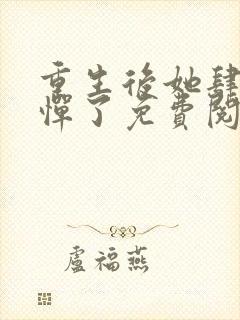 重生後她肆
憚了免費閱
盧福燕